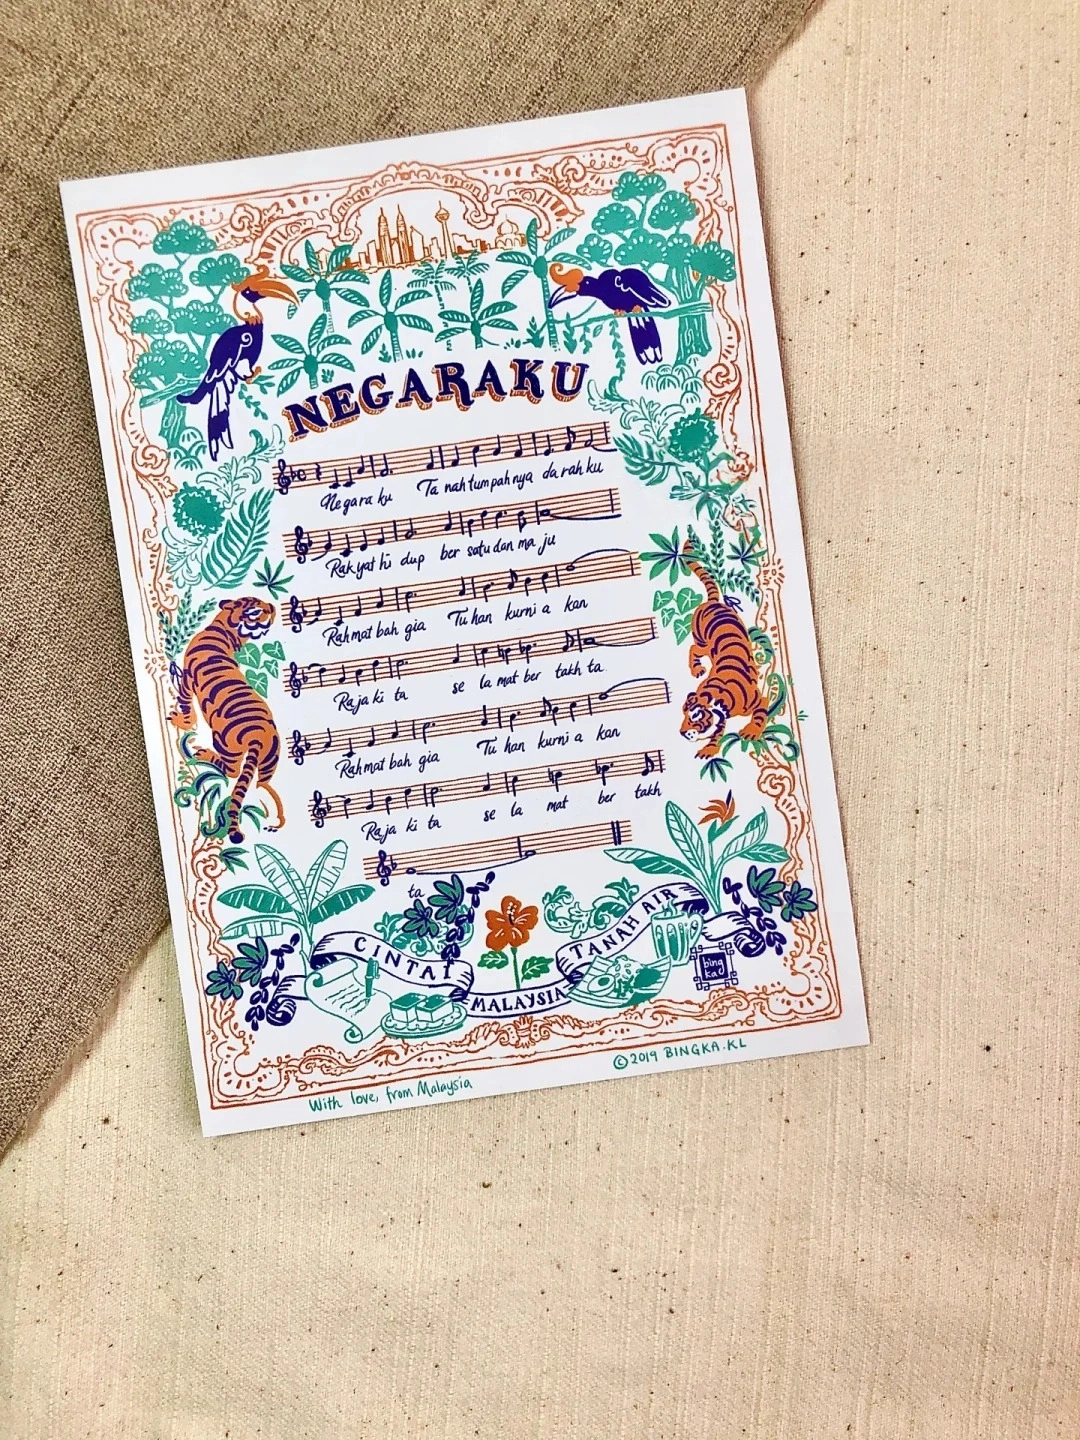 NEGARAKU
Negara ku Ta nah tumpah nya da rah ku
Rak yat hi dup ber satu dan ma ju
Rahmat bah gia Tu han kurni a kan
Raja ki ta se la mat ber takh ta
Rahmat bah gia Tu han kurni a kan
Raja ki ta se la mat ber takh
ta
CINTAI
TANAH AIR
MALAYSIA
bing
ka
With love, from Malaysia
© 2019 BINGKA.KL